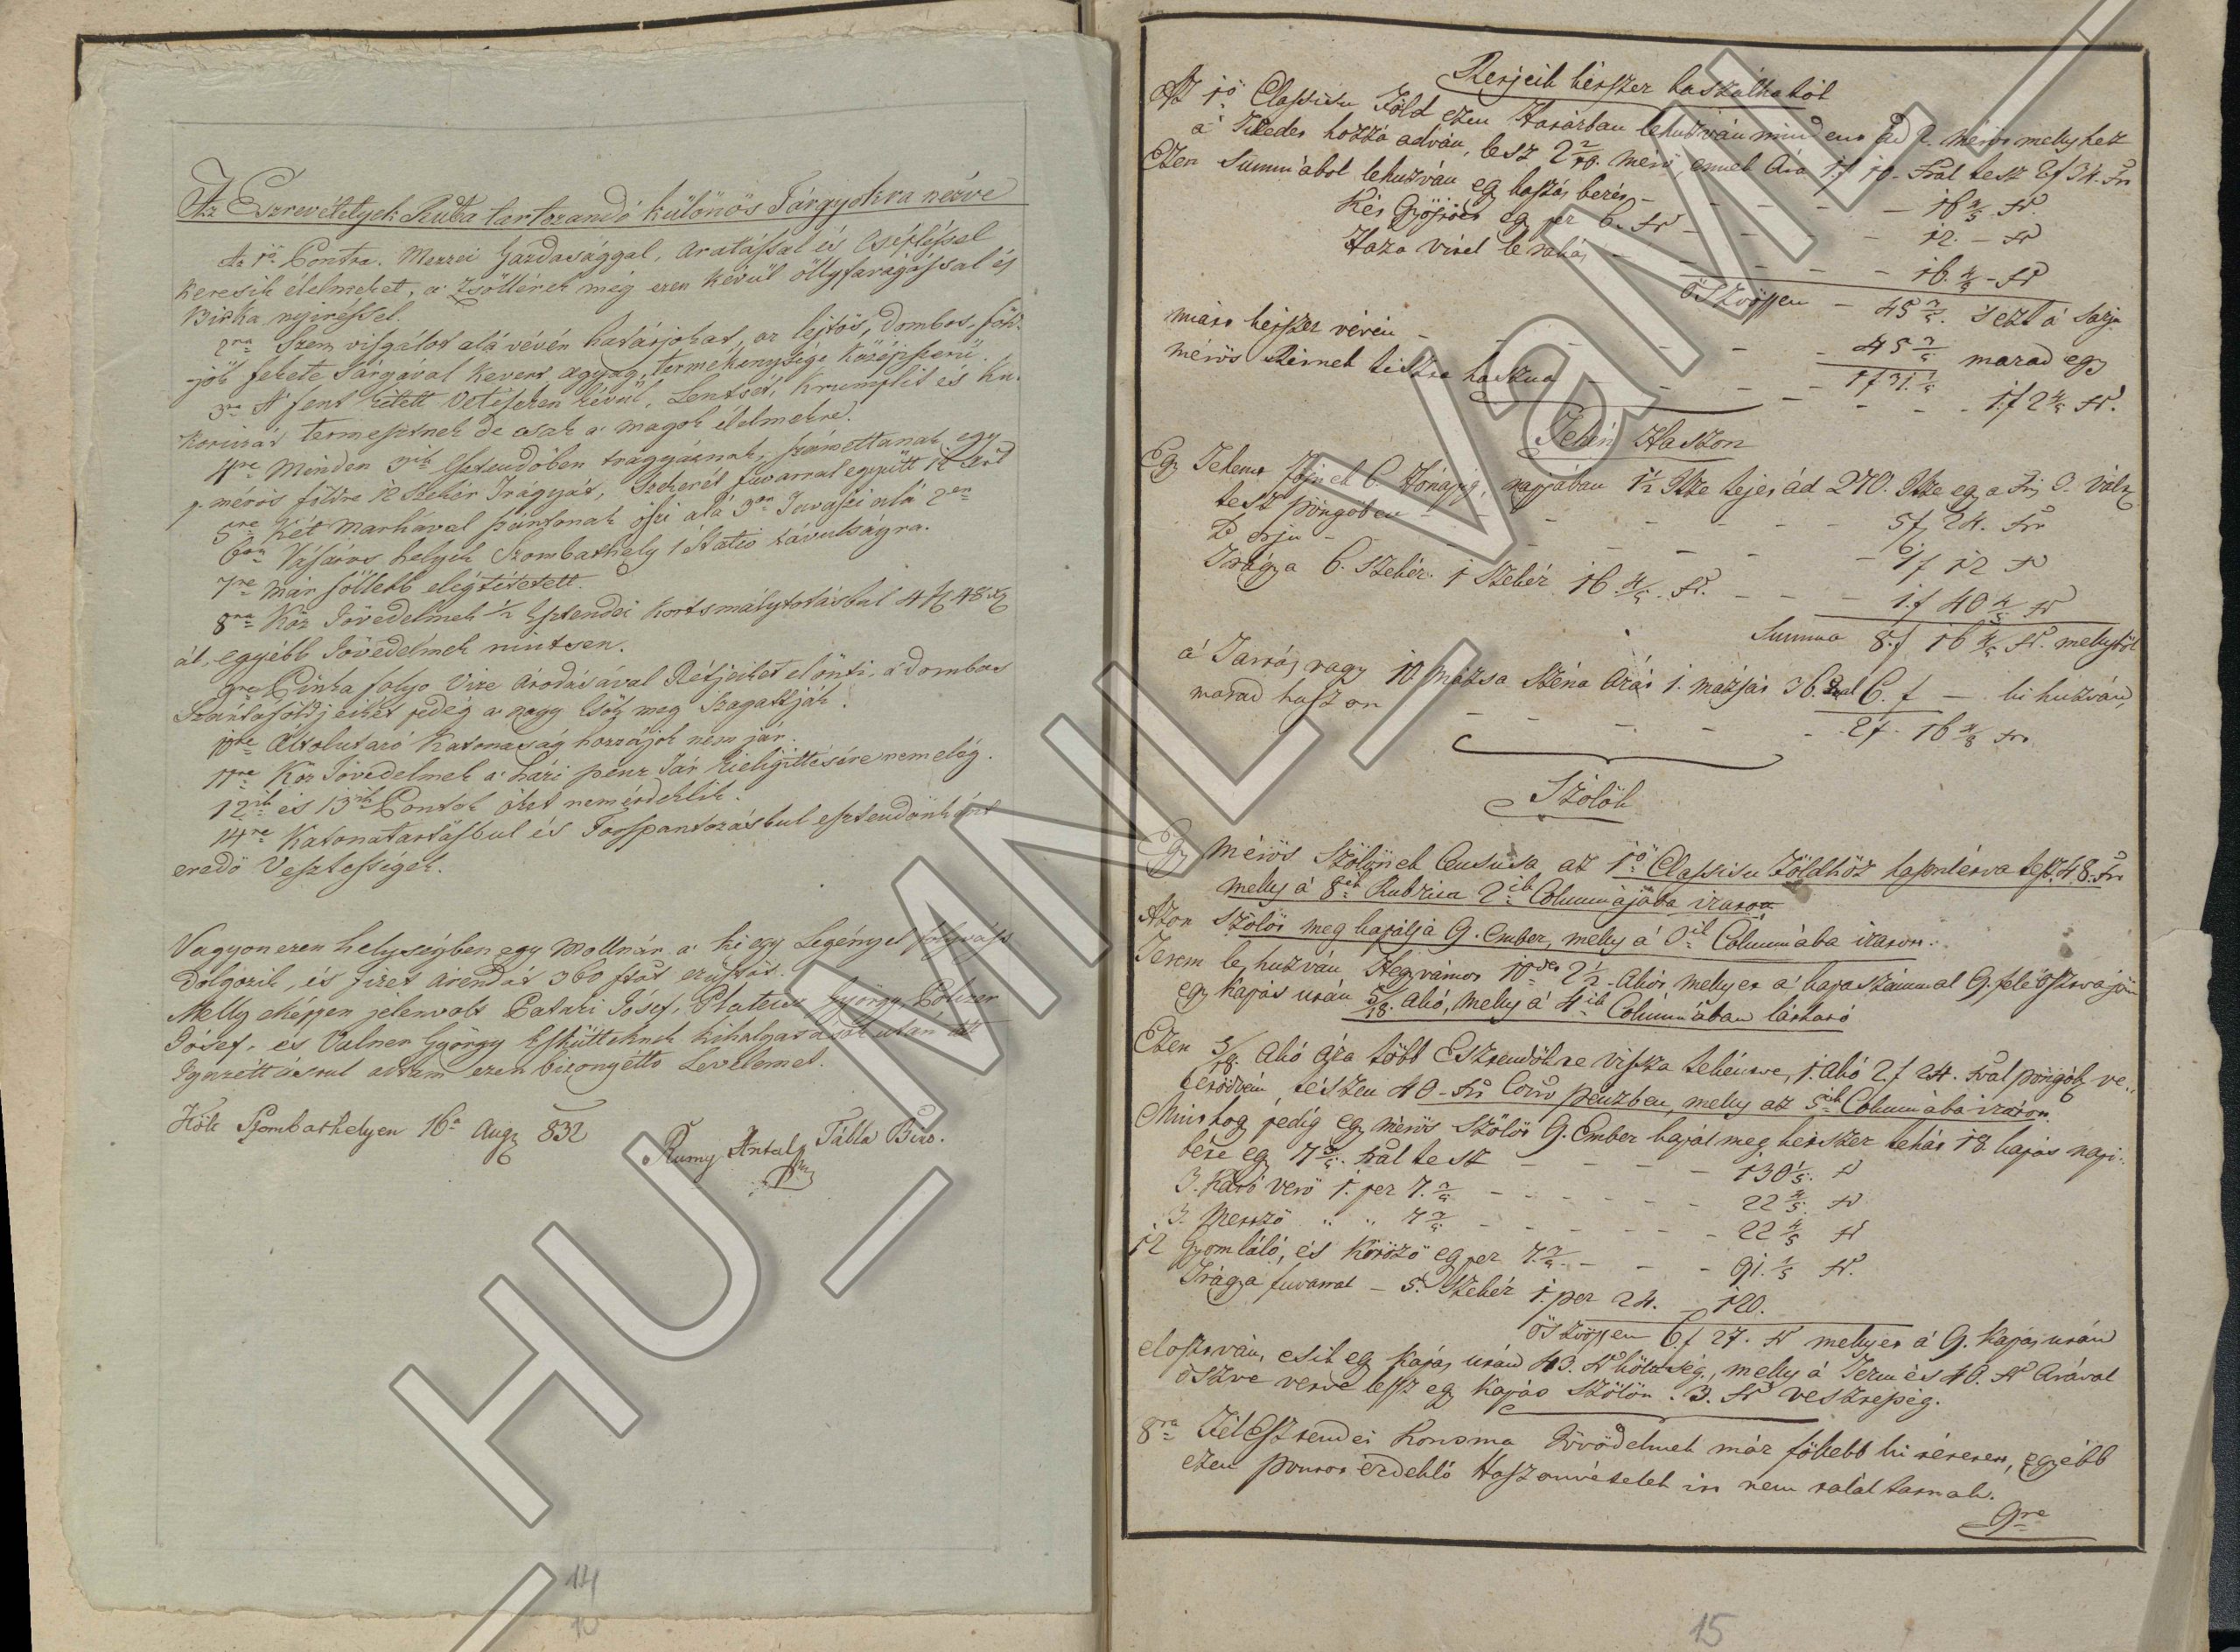 Az Eszrevételyek Rutba tartozandó különös Tárgyokra nézve
Az 1ő Pontra. Mezzei Gazdasággal, Aratással és Csépléssel
keresik élelmeket, a Zsöllérek még ezen kévül öllyfavágással és
Birka nyiréssel.
2ra Szem visgálat alá vévén határjokat, az lejtös, dombos, föd-
jök fekete Sárgával kevert agyag, termekenysége középszerü.
3ra A' fent Vetésezen kévül, Lentset, Krumplit és Ku-
koriczát termesztnek de csak a magok élelmekre.
4re Minden 3ik Esztendőben trágyáznak, számottanak egy
p. mérős földre 12 Szekér Trágyát, Szekerét fuvarral együtt 12
5re Két Marhával szántanak öszi alá 3or Tavaszi alá 2en
6ra Vásáros helyik Szombathely 1 Statio távulságra.
7re már föllebb elégtétetett.
8ra Köz Jövedelmek 1/2 Esztendei Kortsmálytatásbul 4 f 48 x
ál, egyébb Jövedelmek nintsen.
9re Pinka folyo Vize Áradásával Rétjeiket elönti, a dombos
Szántóföldjeiket pedég a nagy Esők meg Szagattják.
10re Általutazó Katonaság hozzájok nem jár.
11re Köz Jövedelmek a házi pénz Tár kielégittésére nem elég.
12ik és 13ik Pontok őket nem érdeklik.
14re Katonatartásbul és Forspontozásbul esztendönként
eredö Vesztességek.
Vagyon ezen helységben egy Mollnár a' ki egy Legényel folyvást
dolgozik, és fizet árendát 360 ftot ezüstöt.
Melly aképpen jelenvolt Patari Jósef, Plateisz György, Polczer
Jósef, és Valner György Esküttteknek kihalgatások után
Igazéttásrul adtam ezen bizonyétto Levelemet.
Költ Szombathelyen 16a Aug 832
Rumy Antal Tábla Biró.
14
Resjeik kétszer kaszálhatók
Az 1ő Classisu Föld ezen Határban lehuzván mindent ád 2. mérőt mellyhez
a' Tizedet hozzá adván, lesz 2 2/10. mérő, ennek Ára 1 f 10. Xral tesz 2 f 34. Xr
Ezen Summából lehuzván egy kaszás bérét - 16 4/5 Xr.
Két Gyöjtőét egy per 6. Xr - 12. - Xr
Haza vitel le rakás - 16. 4/5 - Xr
Öszvössen - 45 3/5. s ezt a' Sarju
miatt kétszer vévén - 45 3/5 marad egy
1 f 31. 1/5
mérős Rétnek tiszta haszna - 1. f 2 4/5 Xr.
Tehén Haszon
Egy Tehenet Fejnek 6. Hónapig, napjában 1 1/2 Itze tejet ád 270. Itze egy a Xr 3. Váltz
tesz pöngőben - 5 f 24. Xr
Borju - 1 f 12 Xr
Trágya 6. Szekér. 1 Szekér 16 4/5. Xr. - 1. f 40 4/5 Xr
Summa 8. f 16 4/5 Xr. mellybül
a' Tartás vagy 10 mázsa Széna árát 1. mázsát 36. Xral 6. f - ki huzván
marad haszon - 2 f. 16 4/5 Xr
Szölök
Egy mérős Szölönek Censusa az 1ő Classisu Földhöz hasonlétva lesz. 48. Xr
melly a' 8ik Rubrica 2ik Columnájába iratott
Azon Szölöt meg kapálja 9. Ember, melly a' 3ik Columába iratott.
Terem le huzván Hegyvámot 10det 2 1/2. Akót mellyet a' kapaszámmal 9. felé osztva jön
egy kapás után 5/18. Akó, melly a' 4ik Columnában látható
Ezen 5/18. Akó ára több Esztendökre viszsza tekéntve, 1. Akó 2. f 24. Xral pöngőb ve-
tetödvén, tészen 40 - Xr Conv pénzben, melly az 5ik Columába iratott.
Minthogy pedig egy mérős Szölőt 9. Ember kapál meg kétszer tehát 18. kapás napi-
bére egy 7 3/5. Xral tesz - 130 1/5. Xr
3. Karó verő 1. per 7. 3/5 - 22 4/5. Xr
3. Metsző " " 7 3/5 - 22 4/5 Xr
12 Gyomláló, és Kötöző egy per 7. 3/5 - 91. 1/5 Xr.
Trágya fuvarral - 5. Szekér 1. per 24. - 120.
Öszvössen 6. f 27. Xr mellyet a' 9. Kapás után
elosztván, esik egy Kapás után 43. Xr költség, melly a' Term és 40. Xr Árával
öszve vetve lesz egy kapás Szölön. 3. Xr veszteség.
8ra Fél Esztendei Korcsma Jövödelmek már föllebb ki tétetett, egyébb
ezen pontot érdeklő Haszonvételek itt nem találtatnak.
9re
15
HU_MNL_VaML_